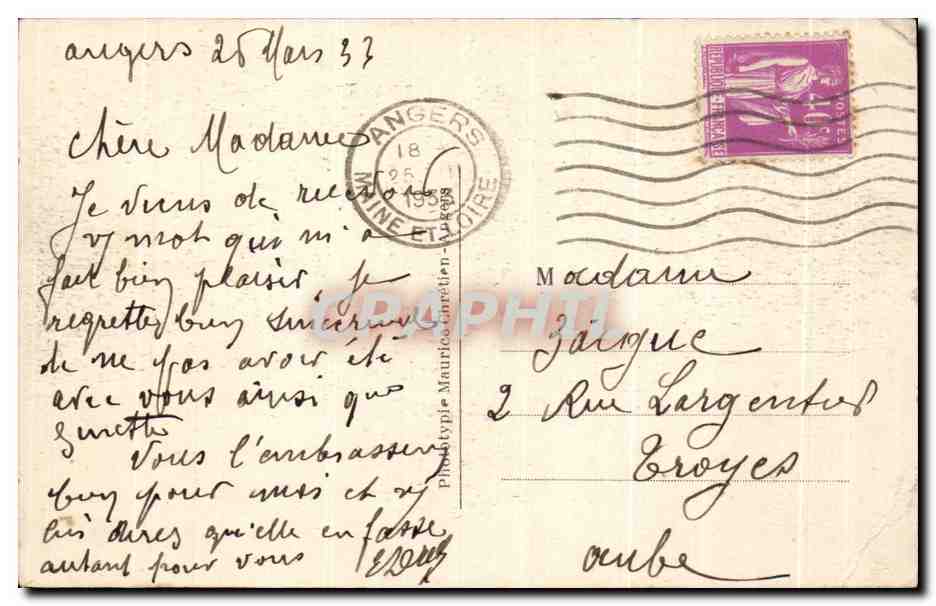 Angers 25 Mars 33
Chère Madame
Je viens de recevoir
mot qui m'a
fait bien plaisir je
regrette bien sincèrement
de ne pas avoir été
avec vous ainsi que
Ginette
Vous l'embrasserez
bien pour moi et
lui direz qu'elle en fasse
autant pour vous
ANGERS
18
25
1933
MAINE ET LOIRE
REPUBLIQUE FRANÇAISE
POSTES
Phototypie Maurice Chrétien - Angers
CPAPHIL
Madame
2 Rue Largentier
Troyes
Aube